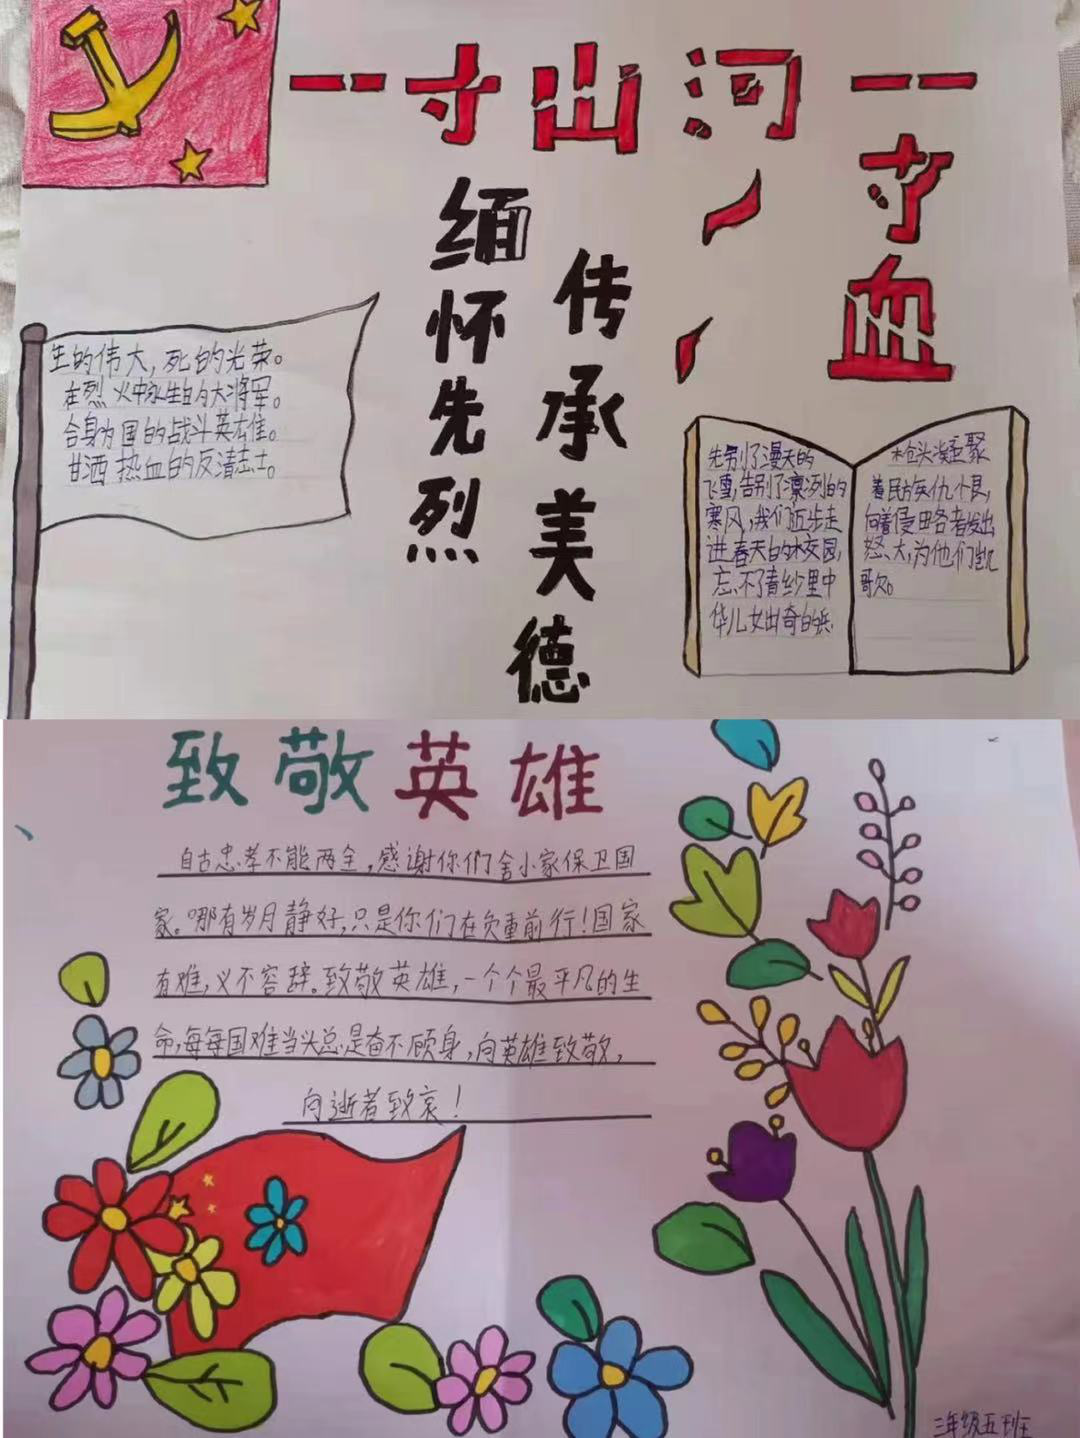 一寸山河一寸血
缅怀先烈
传承美德
生的伟大,死的光荣。
在烈火中永生的大将军。
合身为国的战斗英雄。
甘洒热血的反清志士。
先别了漫天的
飞雪,告别了凛冽的
寒风,我们迈步走
进春天的校园,
忘不了青纱里中
华儿女出奇的兵
枪头凝聚
着民族仇恨,
向着侵略者发出
怒火,为他们凯
歌
致敬英雄
自古忠孝不能两全,感谢你们舍小家保卫国
家。哪有岁月静好,只是你们在负重前行!国家
有难,义不容辞。致敬英雄,一个个最平凡的生
命,每每国难当头总是奋不顾身,向英雄致敬,
向逝者致哀!
三年级五班